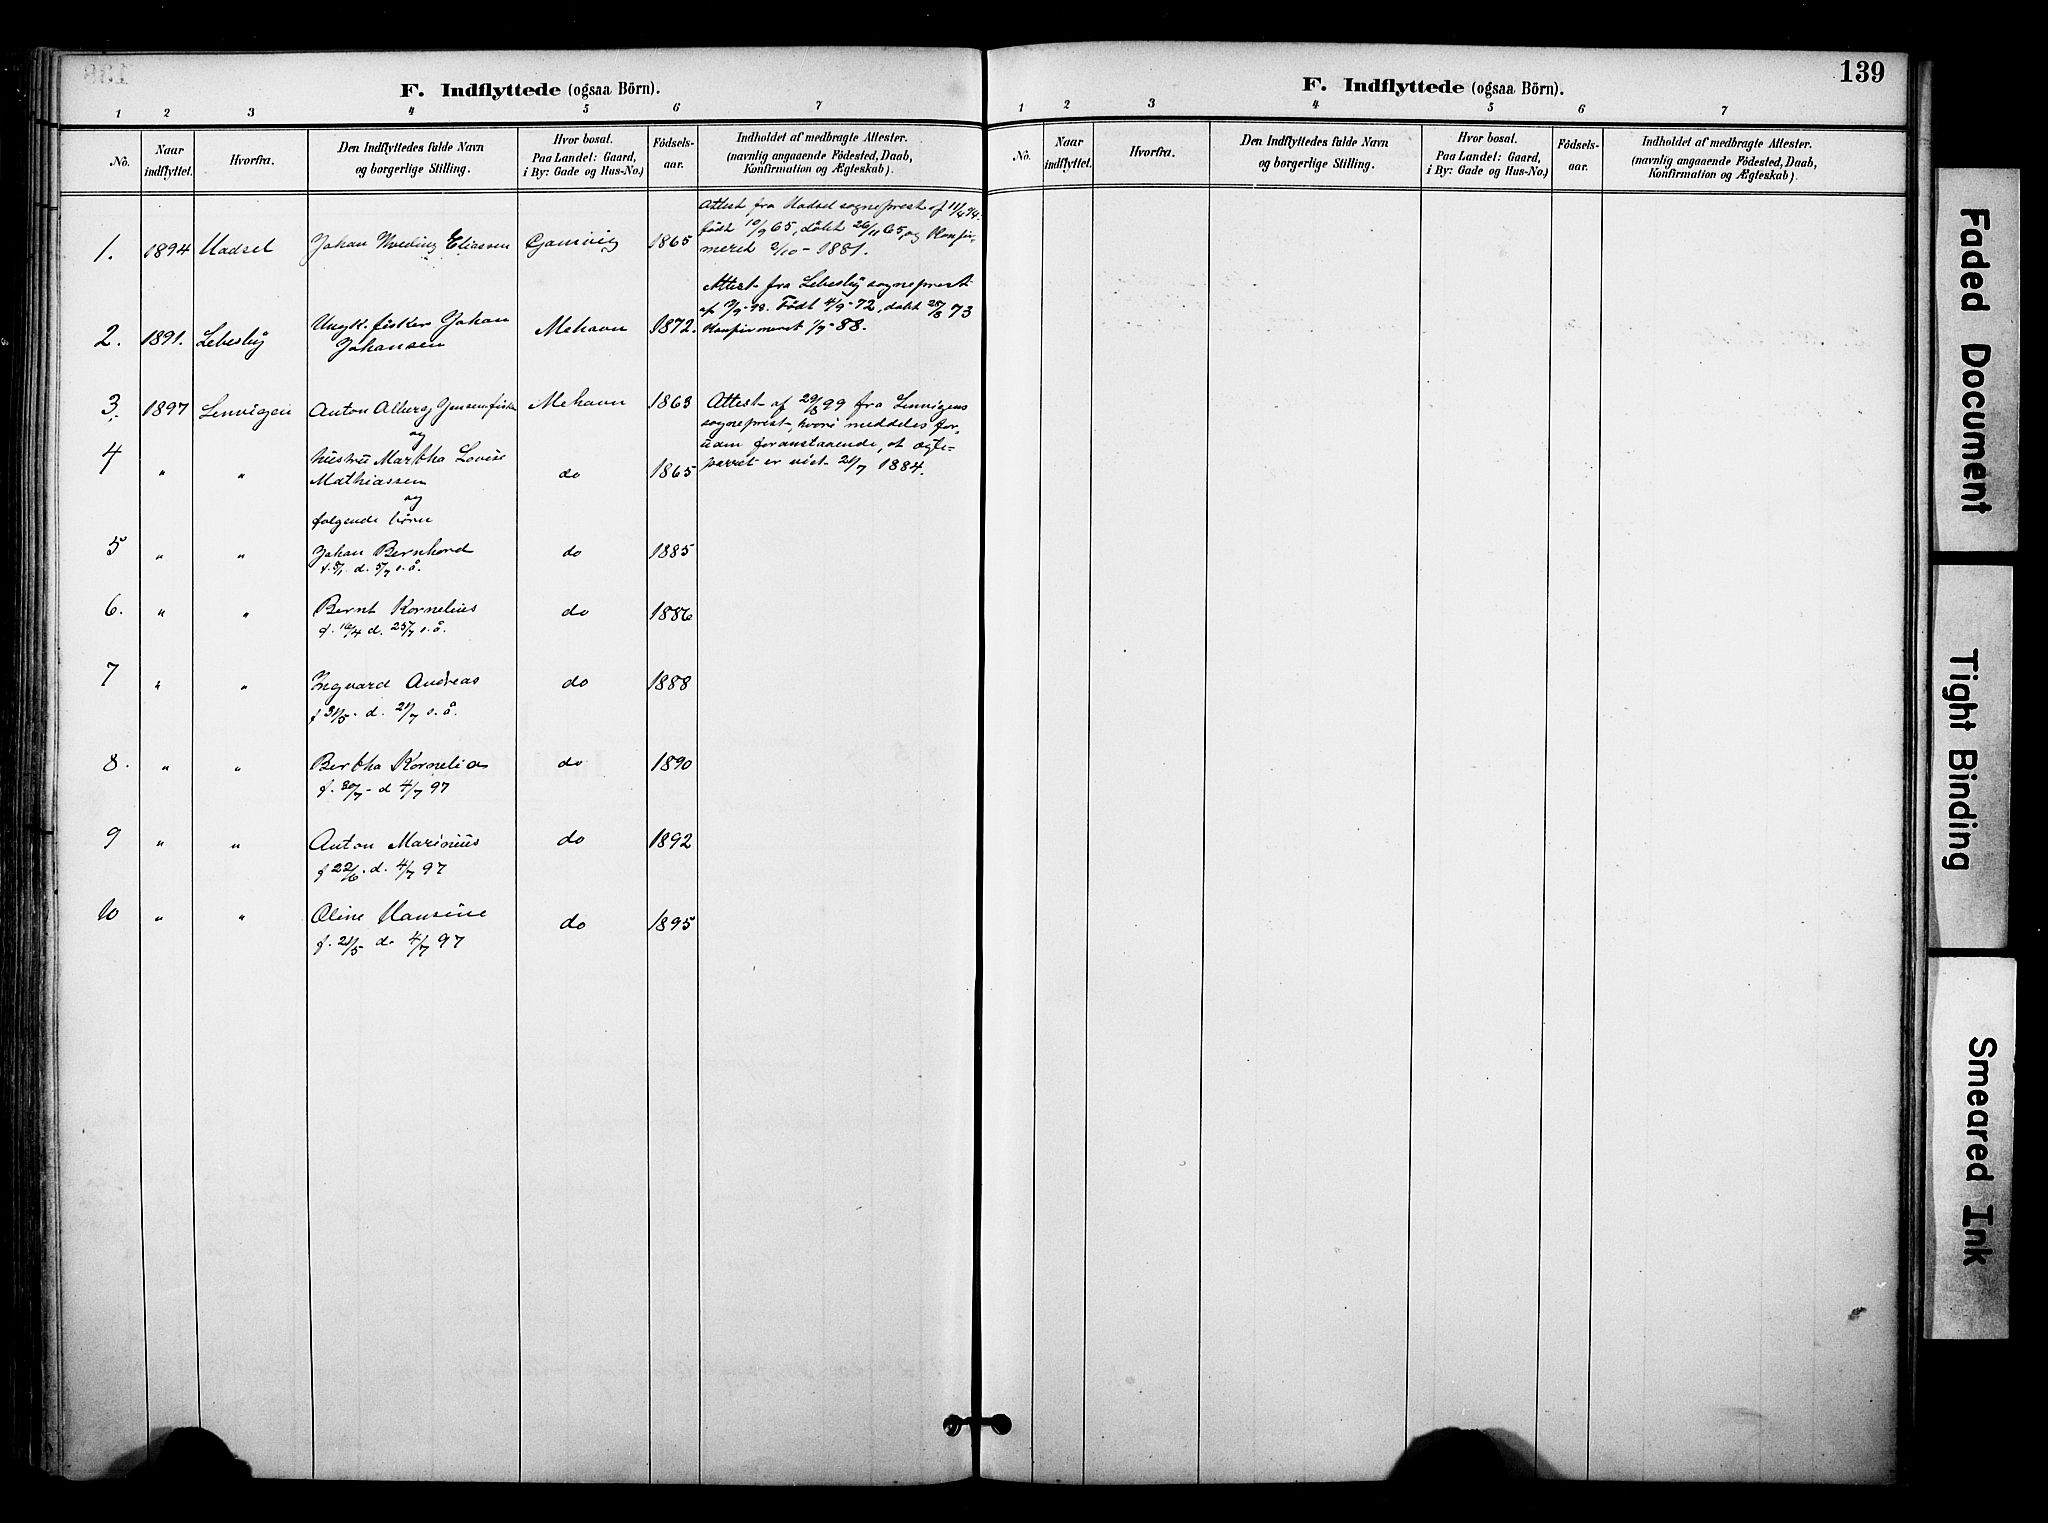 F. Indflyttede (ogsaa Börn).
1 2 3 4 5 6 7
No.
Naar indflyttet.
Hvorfra.
Den Indflyttedes fulde Navn
og borgerlige Stilling.
Hvor bosat.
Paa Landet: Gaard,
i By: Gade og Hus-No.)
Födsels-
aar.
Indholdet af medbragte Attester.
(navnlig angaaende Födested, Daab,
Konfirmation og Ægteskab).
1. 1894 Hadsel Johan Hveding Eliassen Gamvig 1865
Attest fra Hadsel sogneprest af 11/4 94.
født 10/9 65, døbt 26/11 65, og Konfir-
meret 2/10 - 1881.
2. 1891. Lebesby Ungk. fisker Johan
Johansen Mehavn 1872.
Attest fra Lebesby sogneprest
Født 4/9-72, døbt 25/8 73
Konfirmeret 1/7-88.
3. 1897 Lenvigen Anton Alberg Jensen fisker Mehavn 1863
og
Attest af 29/8 99 fra Lenvigens
sogneprest, hvori meddeles for-
uden foranstaaende, at ægte-
parret er viet 21/7 1884.
4 " " hustru Martha Lovise
Mathiassen do 1865
og
følgende børn
5 " " Johan Bernhard do 1885
f. 8/1. d. 5/7 s. å.
6. " " Bernt Kornelius do 1886
f. 16/4 d. 25/7 s. å.
7 " " Ingvard Andreas do 1888
f 31/5. d. 21/7 s. å.
8. " " Bertha Kornelia do 1890
f. 30/7 - d 4/7 97
9 " " Anton Marinius do 1892
f 22/6. d. 4/7 97
10 " " Oline Hansine do 1895
f. 21/5 d. 4/7 97
139
F. Indflyttede (ogsaa Börn).
1 2 3 4 5 6 7
No.
Naar
indflyttet.
Hvorfra.
Den Indflyttedes fulde Navn
og borgerlige Stilling.
Hvor bosat.
Paa Landet: Gaard,
i By: Gade og Hus-No.)
Födsels-
aar.
Indholdet af medbragte Attester.
(navnlig angaaende Födested, Daab,
Konfirmation og Ægteskab).
Faded Document
Tight Binding
Smeared Ink